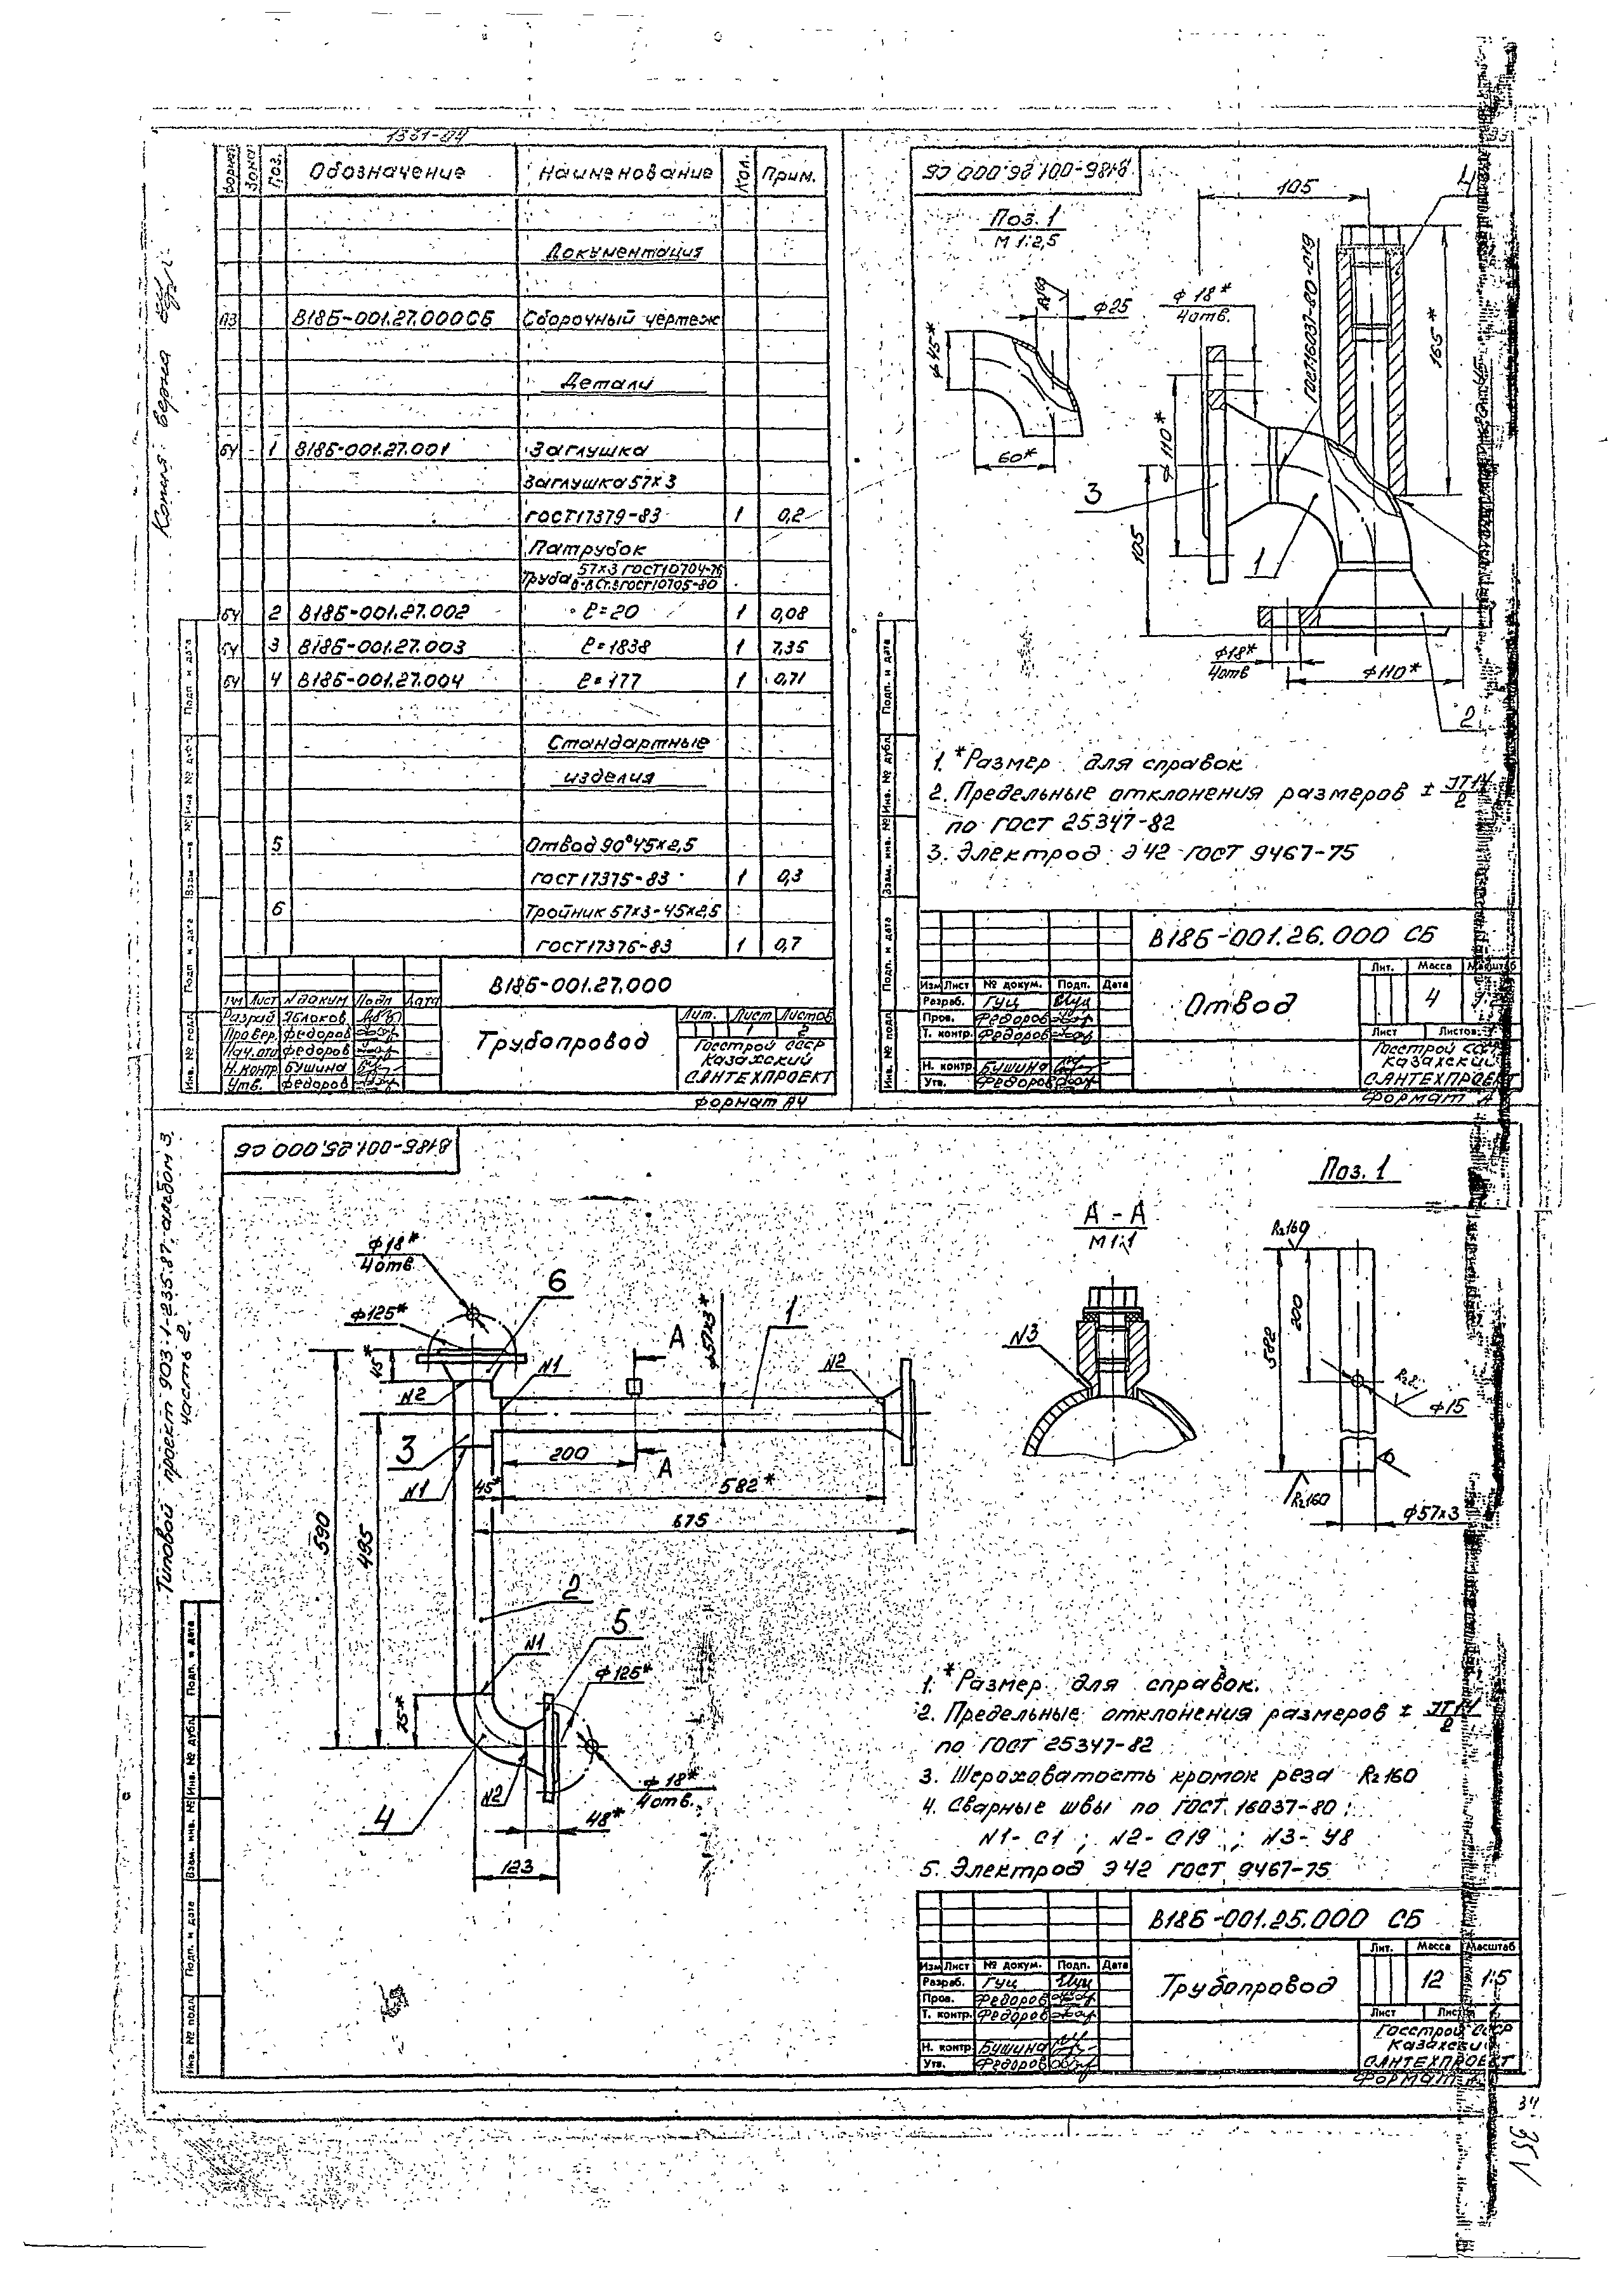 Копия верна
Типовой проект 903-1-235.87 альбом 3.
часть 2.
Поз. Обозначение Наименование Кол. Прим.
Документация
А3 В18Б-001.27.000СБ Сборочный чертеж
Детали
БЧ 1 В18Б-001.27.001 Заглушка
Заглушка 57×3
ГОСТ17379-83 1 0,2
Патрубок
Труба 57×3 ГОСТ10704-76
ГОСТ10705-80
БЧ 2 В18Б-001.27.002 ℓ=20 1 0,08
БЧ 3 В18Б-001.27.003 ℓ=1838 1 7,35
БЧ 4 В18Б-001.27.004 ℓ=177 1 0,71
Стандартные
изделия
5 Отвод 90°45×2,5
ГОСТ17375-83 1 0,3
6 Тройник 57×3-45×2,5
ГОСТ17376-83 1 0,7
В18Б-001.27.000
Изм Лист № докум Подп Дата
Разраб Яблоков
Провер. Федоров
Нач.отд Федоров
Н.контр Бушина
Утв. Федоров
Трубопровод
Лит. Лист Листов
1 2
Госстрой СССР
Казахский
САНТЕХПРОЕКТ
Формат А4
Подп. и дата
Взам. инв. №
Инв. № дубл.
Подп. и дата
Инв. № подл.
В18Б-001.26.000 СБ
Поз. 1
М 1:2,5
105
4
φ25
φ45*
60*
φ18*
4отв.
ГОСТ16037-80-С19
165*
φ110*
105
3
1
φ18*
4отв
φ110*
2
1. *Размер для справок
2. Предельные отклонения размеров ± IT14/2
по ГОСТ 25347-82
3. Электрод Э42 ГОСТ 9467-75
В18Б-001.26.000 СБ
Изм Лист № докум. Подп. Дата
Разраб. Гуц
Пров. Федоров
Т. контр. Федоров
Н. контр Бушина
Утв. Федоров
Отвод
Лит. Масса Масштаб
4
Лист Листов
Госстрой СССР
Казахский
САНТЕХПРОЕКТ
Формат А
Подп. и дата
Инв. № дубл.
Взам. инв. №
Подп. и дата
Инв. № подл.
В18Б-001.25.000 СБ
Поз. 1
А - А
М1:1
φ18*
4отв.
6
φ125*
45*
N1
N2
А
φ57×3*
1
N2
3
N1
200
А
45*
582*
675
590
495
2
N1
5
φ125*
75*
N2
φ18*
4отв.
4
48*
123
N3
Rz160
200
582
φ15
Rz160
φ57×3
1. *Размер для справок.
2. Предельные отклонения размеров ± IT14/2
по ГОСТ 25347-82
3. Шероховатость кромок реза Rz160
4. Сварные швы по ГОСТ 16037-80:
N1- С1 ; N2- С19 ; N3- У8
5. Электрод Э42 ГОСТ 9467-75
В18Б-001.25.000 СБ
Изм Лист № докум. Подп. Дата
Разраб. Гуц
Пров. Федоров
Т. контр. Федоров
Н. контр Бушина
Утв. Федоров
Трубопровод
Лит. Масса Масштаб
12 1:5
Лист
Госстрой СССР
Казахский
САНТЕХПРОЕКТ
Формат
Подп. и дата
Инв. № дубл.
Взам. инв. №
Подп. и дата
Инв. № подл.
34
35